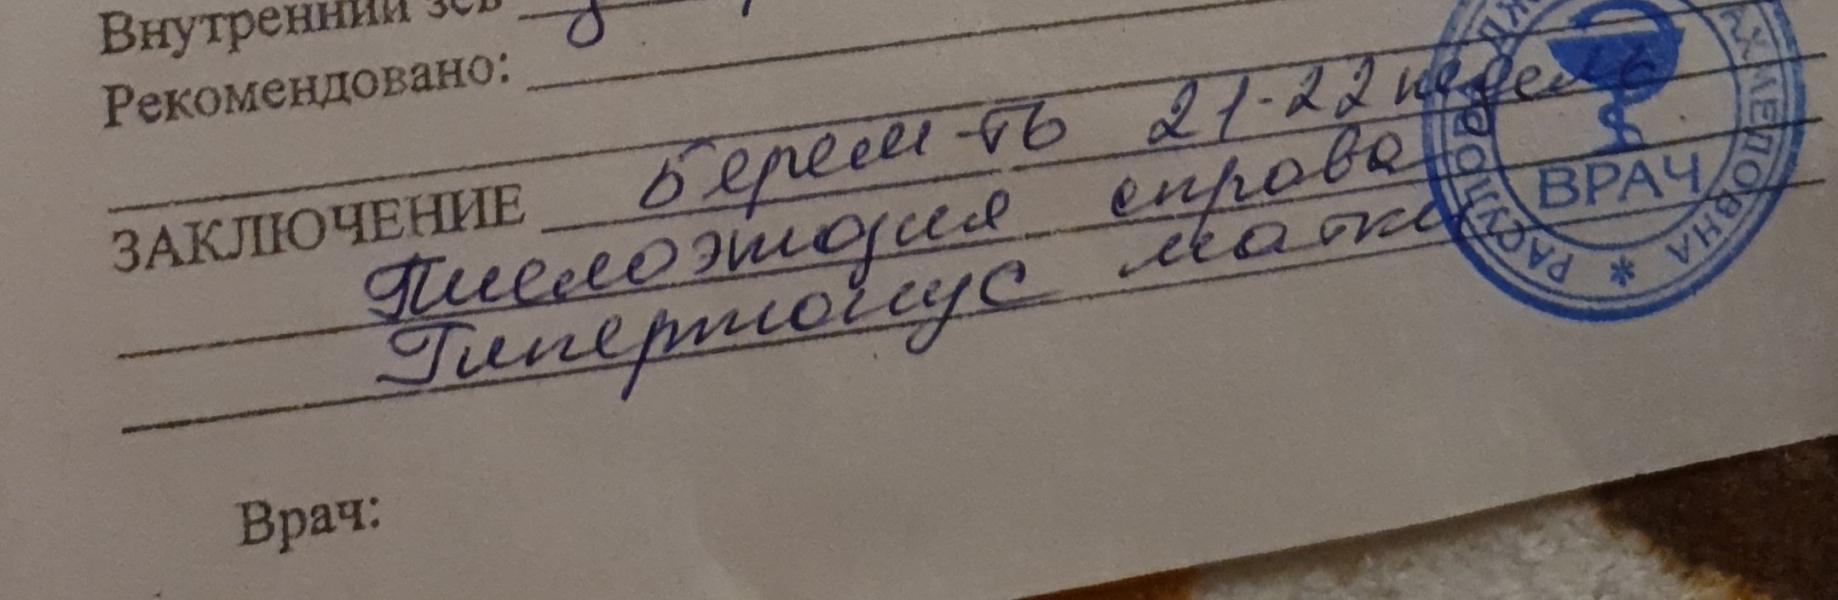 Внутренний зев
Рекомендовано:
ЗАКЛЮЧЕНИЕ Берем-ть 21-22 недель
Пиелоэктазия справа
Гипертонус матки
Врач:
ВРАЧ